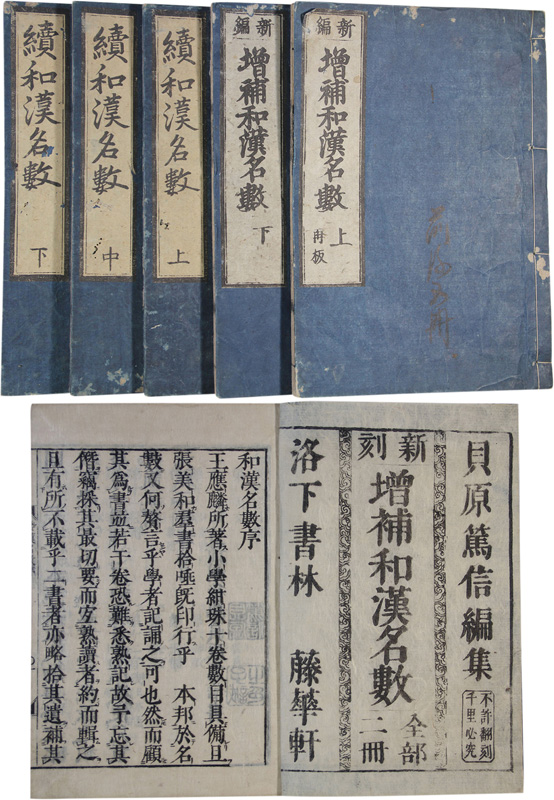 新編
增補和漢名數 上
再板
新編
增補和漢名數 下
續和漢名數 上
續和漢名數 中
續和漢名數 下
貝原篤信編集
不許翻刻
千里必究
新刻
增補和漢名數 全部二冊
洛下書林 藤華軒
和漢名數序
王應麟所著小學紺珠十卷數目具備且
張美和羣書拾唾既印行乎 本邦於名
數又何贅言乎學者記誦之可也然而顧
其爲書並若干卷恐難悉熟記故予忘其
僭竊採其最切要而宜熟讀者約而輯之
且有所不載乎二書者亦略拾其遺補其